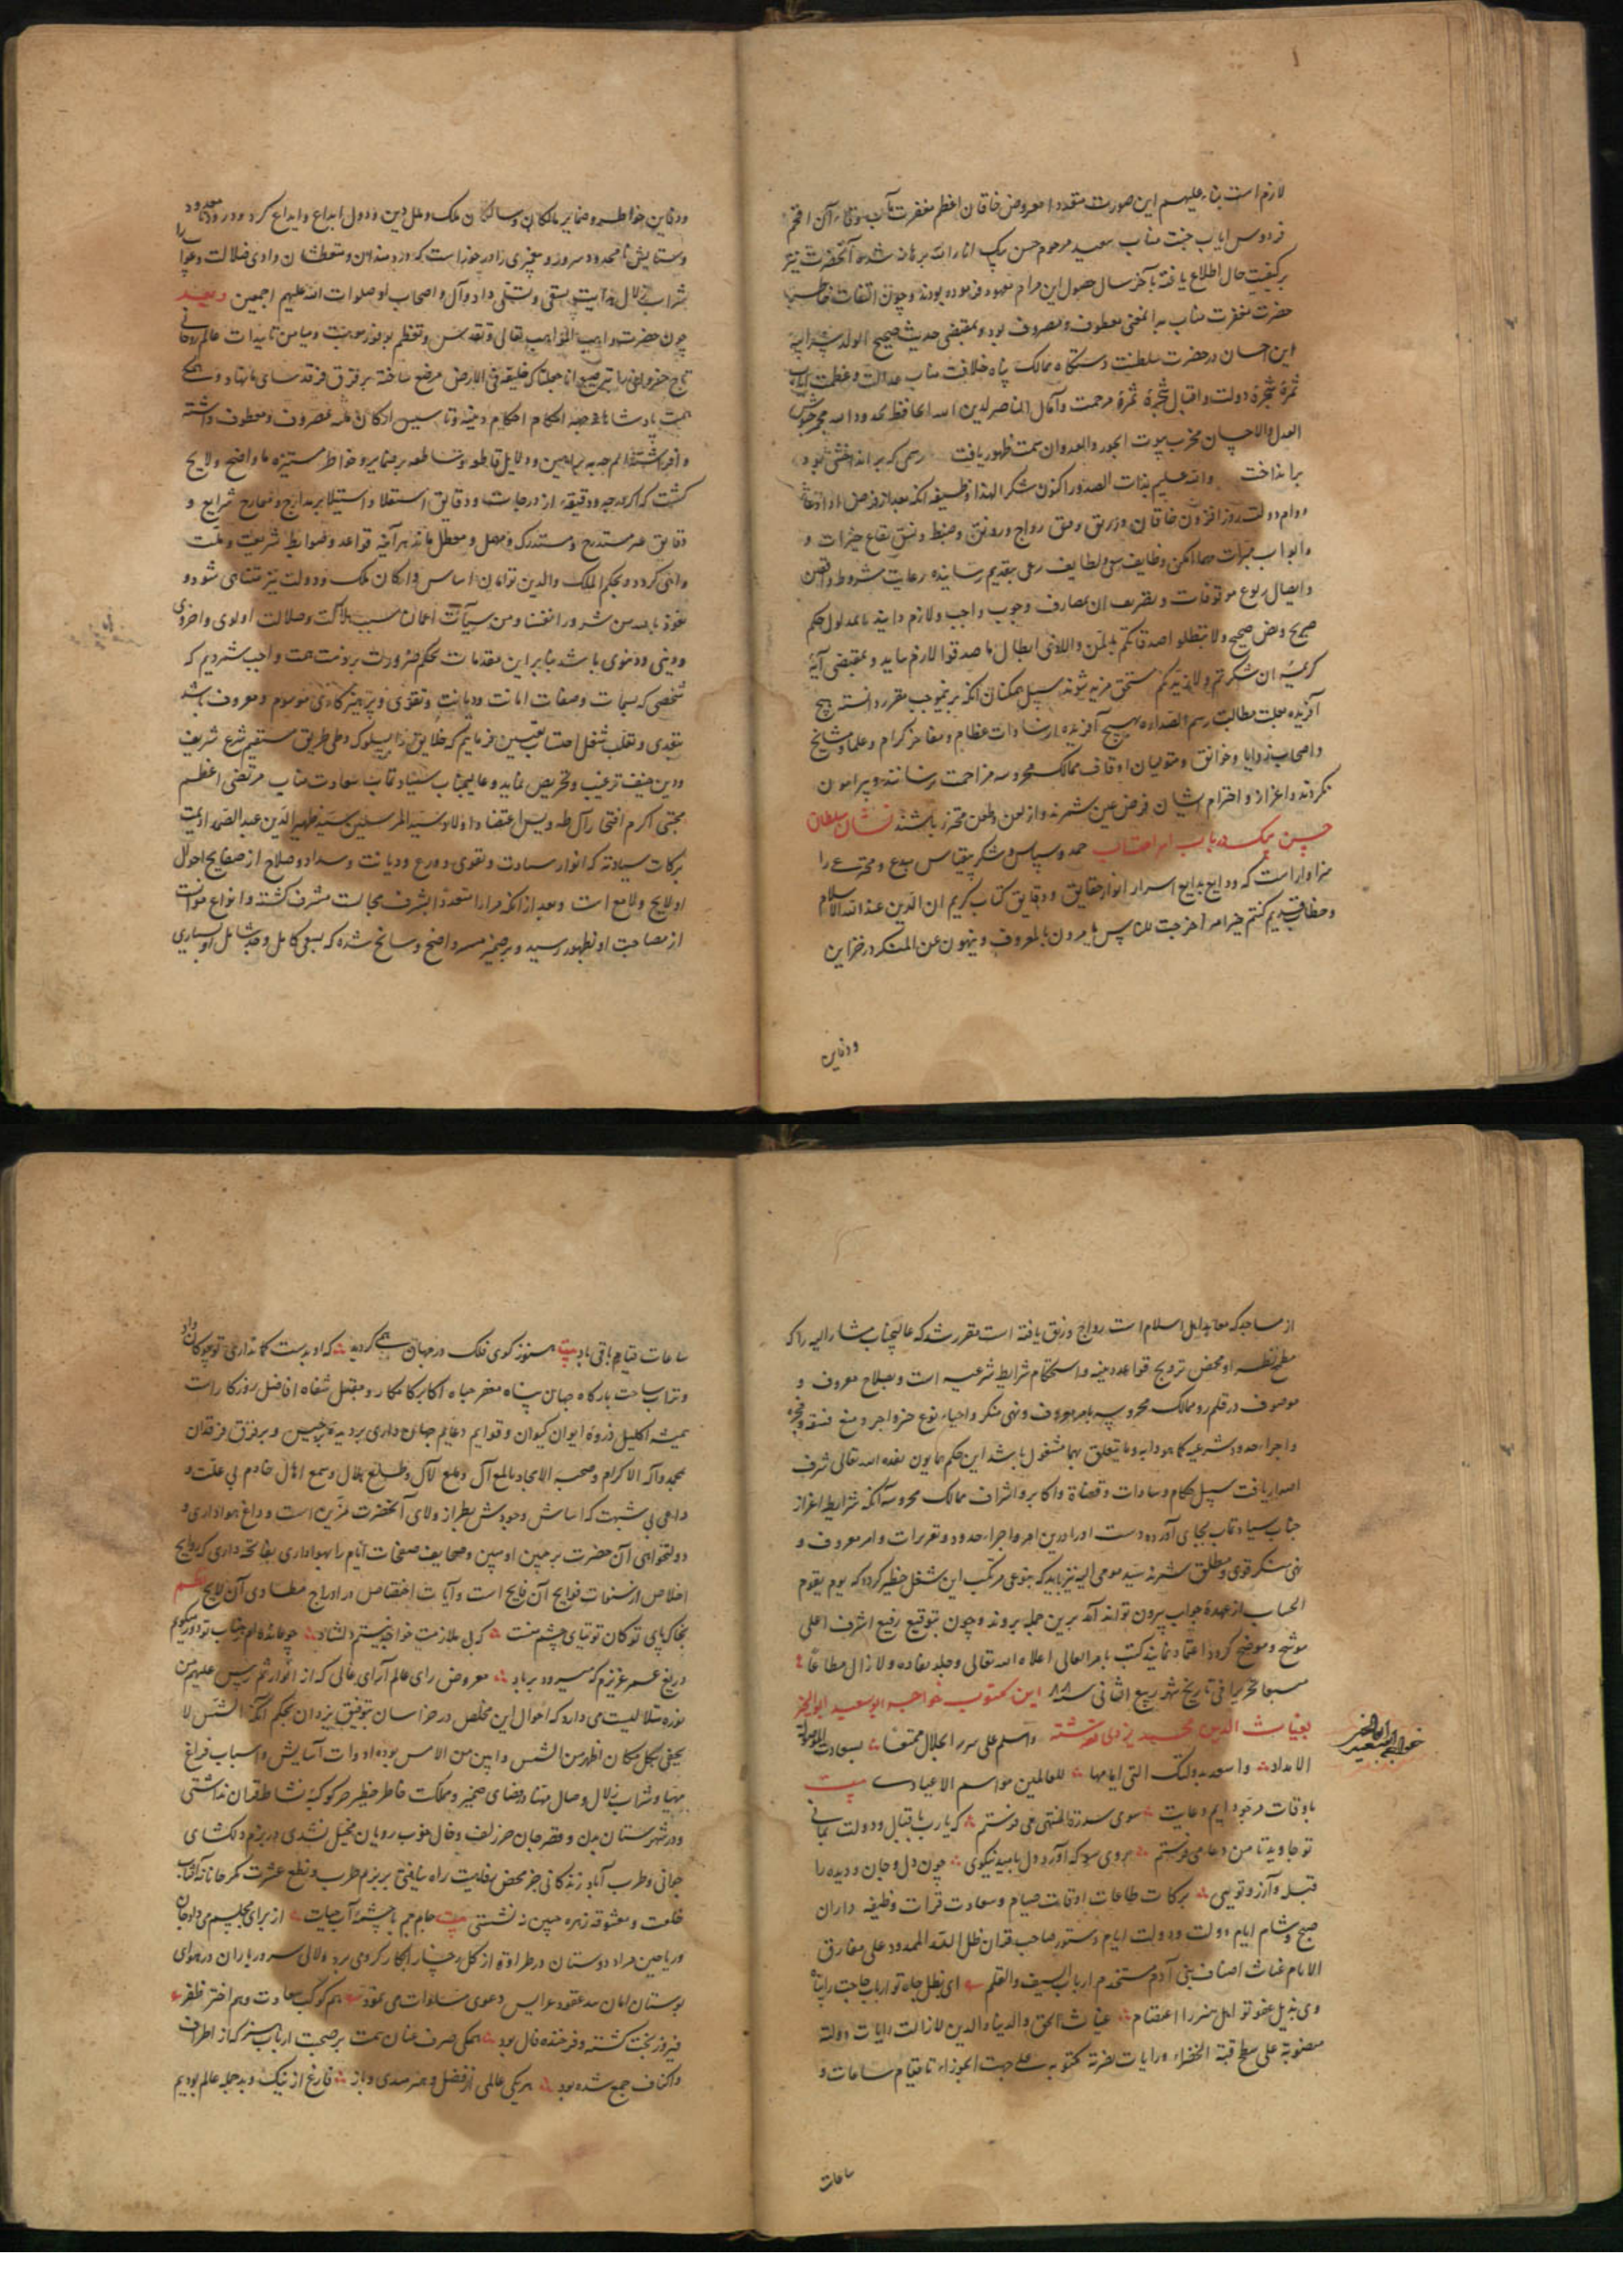 لازم است بناء علیهم این صورت متعدد امعروض خاقان اعظم مغفرت مآب
فردوس ایاب جنت مناب سعید مرحوم حسن بیک انار الله برهانه شد و آنحضرت نیز
بر کیفیت حال اطلاع یافته بآخر سال حصول این مرام تعهد فرموده بودند و چون التفات خاطر
حضرت مغفرت مناب بدانمعنی معطوف و مصروف بود و بمقتضی حدیث صحیح الولد سر ابیه
این احسان در حضرت سلطنت دستگاه ممالک پناه خلافت مناب عدالت و عظمت ایاب
ثمرهٔ شجرهٔ دولت و اقبال شجرهٔ ثمرهٔ مرحمت و آمال الناصر لدین الله الحافظ لحدود الله
العدل و الاحسان مخرب بیوت الجور و العدوان سمت ظهور یافت رسمی که بر انداختنی بود
برانداخت والله علیم بذات الصدور اکنون شکرا لهذا وظیفه آنکه بعد از فرض
دوام دولت روز افزون خاقان در رتق و فتق رواج و رونق و ضبط و نسق بقاع خیرات و
و ابواب مبرات مهما امکن وظایف سعی و لطایف رعی بتقدیم رسانیده رعایت شروط واقفین
و ایصال ریوع موقوفات و بقریف ان بمصارف وجوب واجب و لازم دانید بمدلول حکم
صریح و نص صحیح ولا تبطلوا صدقاتکم بالمن والاذی ابطال ما صدقوا لازم نیاید و بمقتضی آیهٔ
کریمهٔ ان شکرتم لازیدنکم مستحق مزید شوند سبیل همکنان آنکه برینموجب مقرر دانسته هیچ
آفریده بعلت مطالبت رسم الصداره بهیچ آفریده از سادات عظام و مفاخر کرام و علما و مشایخ
و اصحاب زوایا و خوانق و متولیان اوقاف ممالک محروسه مزاحمت نرسانند و پیرامون
نکردند و اعزاز و احترام ایشان فرض عین شمرند و از لعن و طعن محترز باشند نشان سلطان
حسن بیک در باب امر احتساب حمد و سپاس و شکر بیقیاس مبدع و مخترعی را
سزاوارست که ودایع بدایع اسرار انوار حقایق و دقایق کتاب کریم ان الدین عند الله الاسلام
و خطاب قدیم کنتم خیر امة اخرجت للناس تأمرون بالمعروف و ینهون عن المنکر در خزاین
ودفاین
ودفاین خواطر و ضمایر مالکان و سالکان ملک و ملل و دین و دول ابداع و ایداع کرد و درود نامعدود
و ستایش نامحدود سرور و پیغمبری را در خورا ست که دردمندان و متعطشان وادی ضلالت و غوایت را
شراب زلال هدایت و یسقی و تسلی داد و آل و اصحاب او صلوات الله علیهم اجمعین و بعد
چون حضرت واهب المواهب تعالی و تقدس و تعظم بوفور موهبت و میامن تأییدات عالم روحانی
تاج خسروانی ما بترصیع انا جعلناک خلیفة فی الارض مرصع ساخته بر فرق فرقدسای ما نهاد و همگی
همت پادشاهانه جهة احکام احکام دینیه و تاسیس ارکان ملیه مصروف و معطوف داشته
و افراشته اند و بر براهین و دلایل قاطعه و ساطعه بر ضمایر و خواطر مستنیره ما واضح و لایح
گشت که اگر درجه و دقیقهٔ از درجات و دقایق استعلا و استیلا بر مدارج و معارج شرایع و
دقایق غیر مستدرج و مستدرک و مهمل و معطل ماند هر آینه قواعد و ضوابط شریعت و ملت
واهی گردد و بحکم الملک والدین توامان اساس و ارکان ملک و دولت نیز متناهی شود و
نعوذ بالله من شرور انفسنا و من سیآت اعمالنا سبب هلاکت و ضلالت اولوی و اخروی
و دینی و دنیوی باشد بنا بر این مقدمات بحکم ضرورت بر ذمت همت واجب شمردیم که
شخصی که بسمات و صفات امانت و دیانت و تقوی و پرهیزکاری موسوم و معروف باشد
بتصدی و تقلد شغل احتساب تعیین فرماییم که خلایق را بسلوک و طی طریق مستقیم شرع شریف
و دین حنیف ترغیب و تحریص نماید و عالیجناب سیادت مآب سعادت مناب مرتضی اعظم
مجتبی اکرم افتخار آل طه و یس اعتضاد اولاد سید المرسلین سید ظهیر الدین عبد الصمد ادیمت
برکات سیادته که انوار سیادت و تقوی و ورع و دیانت و سداد و صلاح از صفایح احوال
او لایح و لامع است و بعد از آنکه مرارا متعددة بشرف مجالست مشرف گشته و انواع موانست
از مصاحبت او بظهور رسید و بر ضمیر منیر واضح و سانح شده که بسعی کامل و جهد شامل او بسیاری
از مساجد که معابد اهل اسلام است رواج و رونق یافته است مقرر شد که عالیجناب مشار الیه را که
مطمح نظر او محض ترویج قواعد دینیه و استحکام شرایط شرعیه است و بصلاح معروف و
موصوف در قلمرو ممالک محروسه بامر بمعروف و نهی منکر و احیاء نوع خیر و اجر و منع فسقه و فجره
و اجراء حدود شرعیه کما هو دابه و ما یتعلق بهما مشغول باشد این حکم همایون نفذه الله تعالی شرف
اصدار یافت سبیل حکام و سادات و قضاة و اکابر و اشراف ممالک محروسه آنکه شرایط اعزاز
جناب سیادتمآب بجای آورده دست او را درین امر و اجراء حدود و تعزیرات و امر معروف و
نهی منکر قوی و مطلق شمرند سید مومی الیه نیز باید که بنوعی مرتکب این شغل خطیر گردد که یوم یقوم
الحساب از عهدهٔ جواب بیرون تواند آمد برین جمله بروند و چون بتوقیع رفیع اشرف اعلی
موشح و موضح گردد اعتماد نمایند کتب بامر العالی اعلاه الله تعالی و خلد نفاده و لازال مطاعا
متبعا تحریرا فی تاریخ شهر ربیع الثانی سنه ۸۸ این مکتوب خواجه ابوسعید ابوالخیر
بغیاث الدین محمد یزدی نوشته واسلم علی سرر الجلال ممتعا بسعادت موصولة
خواجه ابوسعید ابوالخیر
الامداد واسعد بدولتک التی ایامها للعالمین مواسم الاعیاد بیت
باوقات مرجو دایم دعایت سوی سدرة المنتهی می فرستم که یا رب باقبال و دولت بمانی
تو جاوید تا من دعا می فرستم بروی هر که آورد دل بامید نیکوی چون دل و جان و دیده را
قبل و آرزو تویی برکات طاعات اوقات صیام و سعادت قرات وظیفه داران
صبح و شام ایام دولت و دولت ایام دستور صاحب قران ظل الله الممدود علی مفارق
الانام غیاث اصناف بنی آدم مستخدم ارباب السیف والقلم ای بظل جاه تو ارباب حاجت را پناه
وی بذیل عفو تو اهل هنر را اعتصام غیاث الحق والدنیا والدین لازالت رایات دولته
منصوبة علی سطح قبة الخضراء و رایات نصرته مکتوبه علی جبهت الجوزاء تا قیام ساعات و
ساعات
ساعات قیام باقی باد بیت هنوز گوی فلک در جهان همی گردید که او بدست کمانداری تو چوگان داد
و تراب ساحت بارگاه جهان پناه معفر جباه اکابر کامکار و مقبل شفاه افاضل روزگار است
همیشه اکلیل ذروهٔ ایوان کیوان و قوایم دعایم جهان داری بر دیدهٔ برجیس و بر فرق فرقدان
بمحمد و آله الاکرام و صحبه الامجاد بالمع آل و طلع هلال و سمع اهلال خادم بی علت و
داعی بی شبهت که اساس وجودش بطراز ولای آنحضرت مزین است و داغ هواداری و
دولتخواهی آن حضرت بر جبین او مبین و صحایف صفحات ایام را بهواداری بفاتحه داری که روایح
اخلاص از نسمات فوایح آن فایح است و آیات اختصاص در ادراج مطاوی آن لایح نظم
بخاکپای تو کان توتیای چشم منست که بی ملازمت خواجه نیستم دلشاد
دریغ عمر عزیزم که میرود بر باد معروض رای عالم آرای عالی که از انوار
نوره تلالیست می دارد که احوال این مخلص در خراسان بتوفیق یزدان بحکم آنکه الشمس لا
یخفی بکل مکان اظهر من الشمس و ابین من الامس بوده ادوات آسایش و اسباب فراغ
مهیا و شراب زلال وصال مهنا و فضای ضمیر و مملکت خاطر خطیر جز کوکبهٔ نشاط نداشتی
و در شهرستان بدن و قصر جان جز زلف و خال خوب رویان مخیل نشدی در بزم دلکشای
جوانی و طرب آباد زندگانی جز محض رفاهیت راه نیافتی بر بزم طرب و نطع عشرت
خلعت و معشوقه زهره جبین نه نشستی بیت جام جم با چشمهٔ آب حیات از برای مجلسم می داد جان
و ریاحین مراد دوستان در طراوة از گل رخسار ابکار گرو می برد و لالی سرور یاران در هوای
بوستان امان عقود عرایس دعوی مساوات می نمود هم کوکب سعادت و هم اختر ظفر
فیروز بخت گشته و فرخنده فال بود همگی صرف عنان همت بر صحبت ارباب هنر که از اطراف
و اکناف جمع شده بود هر یکی عالمی از فضل و هنر فارغ از نیک و بد جمله عالم بودیم